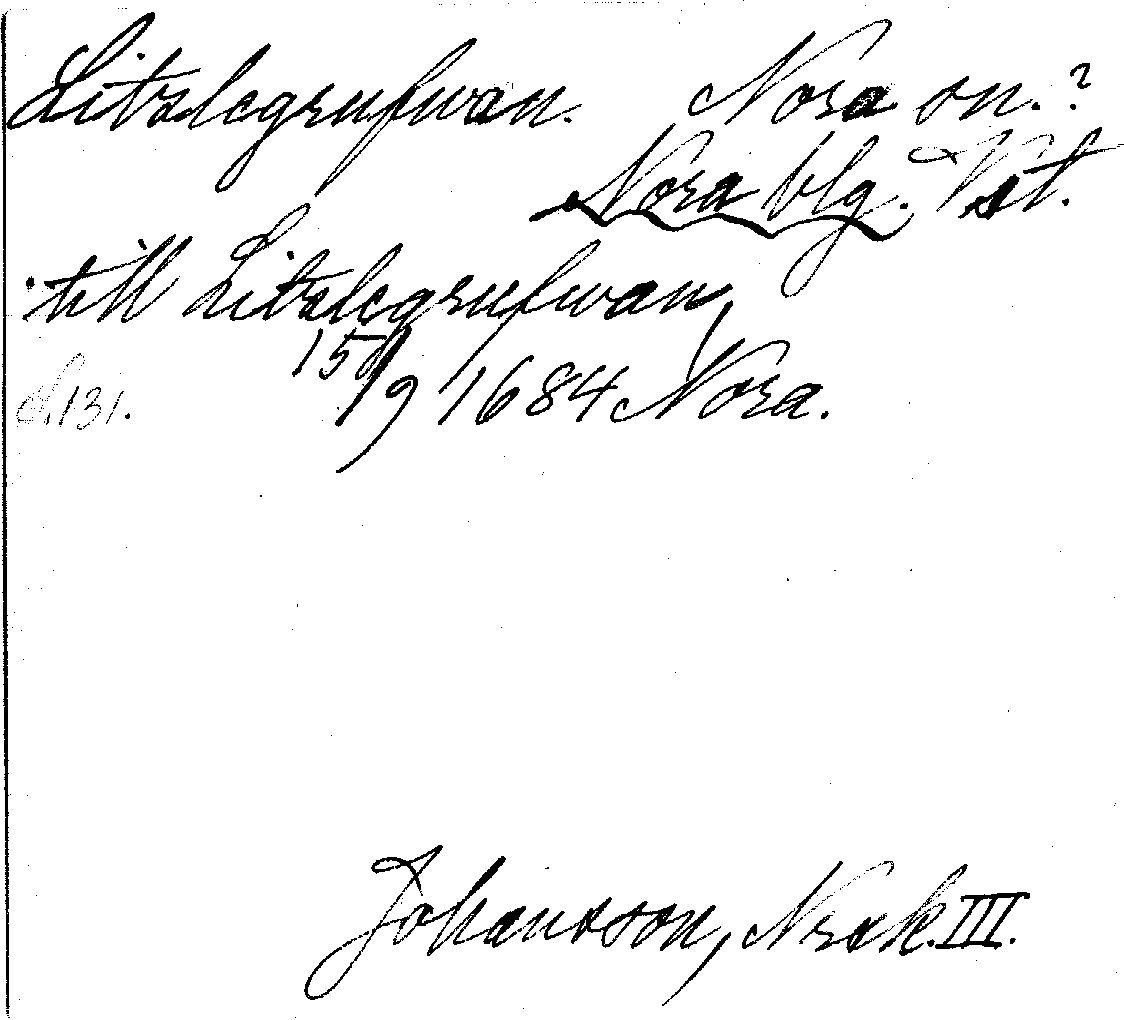 Litslegrufwan. Nora sn.?
Nora blg. Vst.
till Litslegrufwan,
15/9 1684 Nora.
S. 131.
Johansson, Nrsk. III.